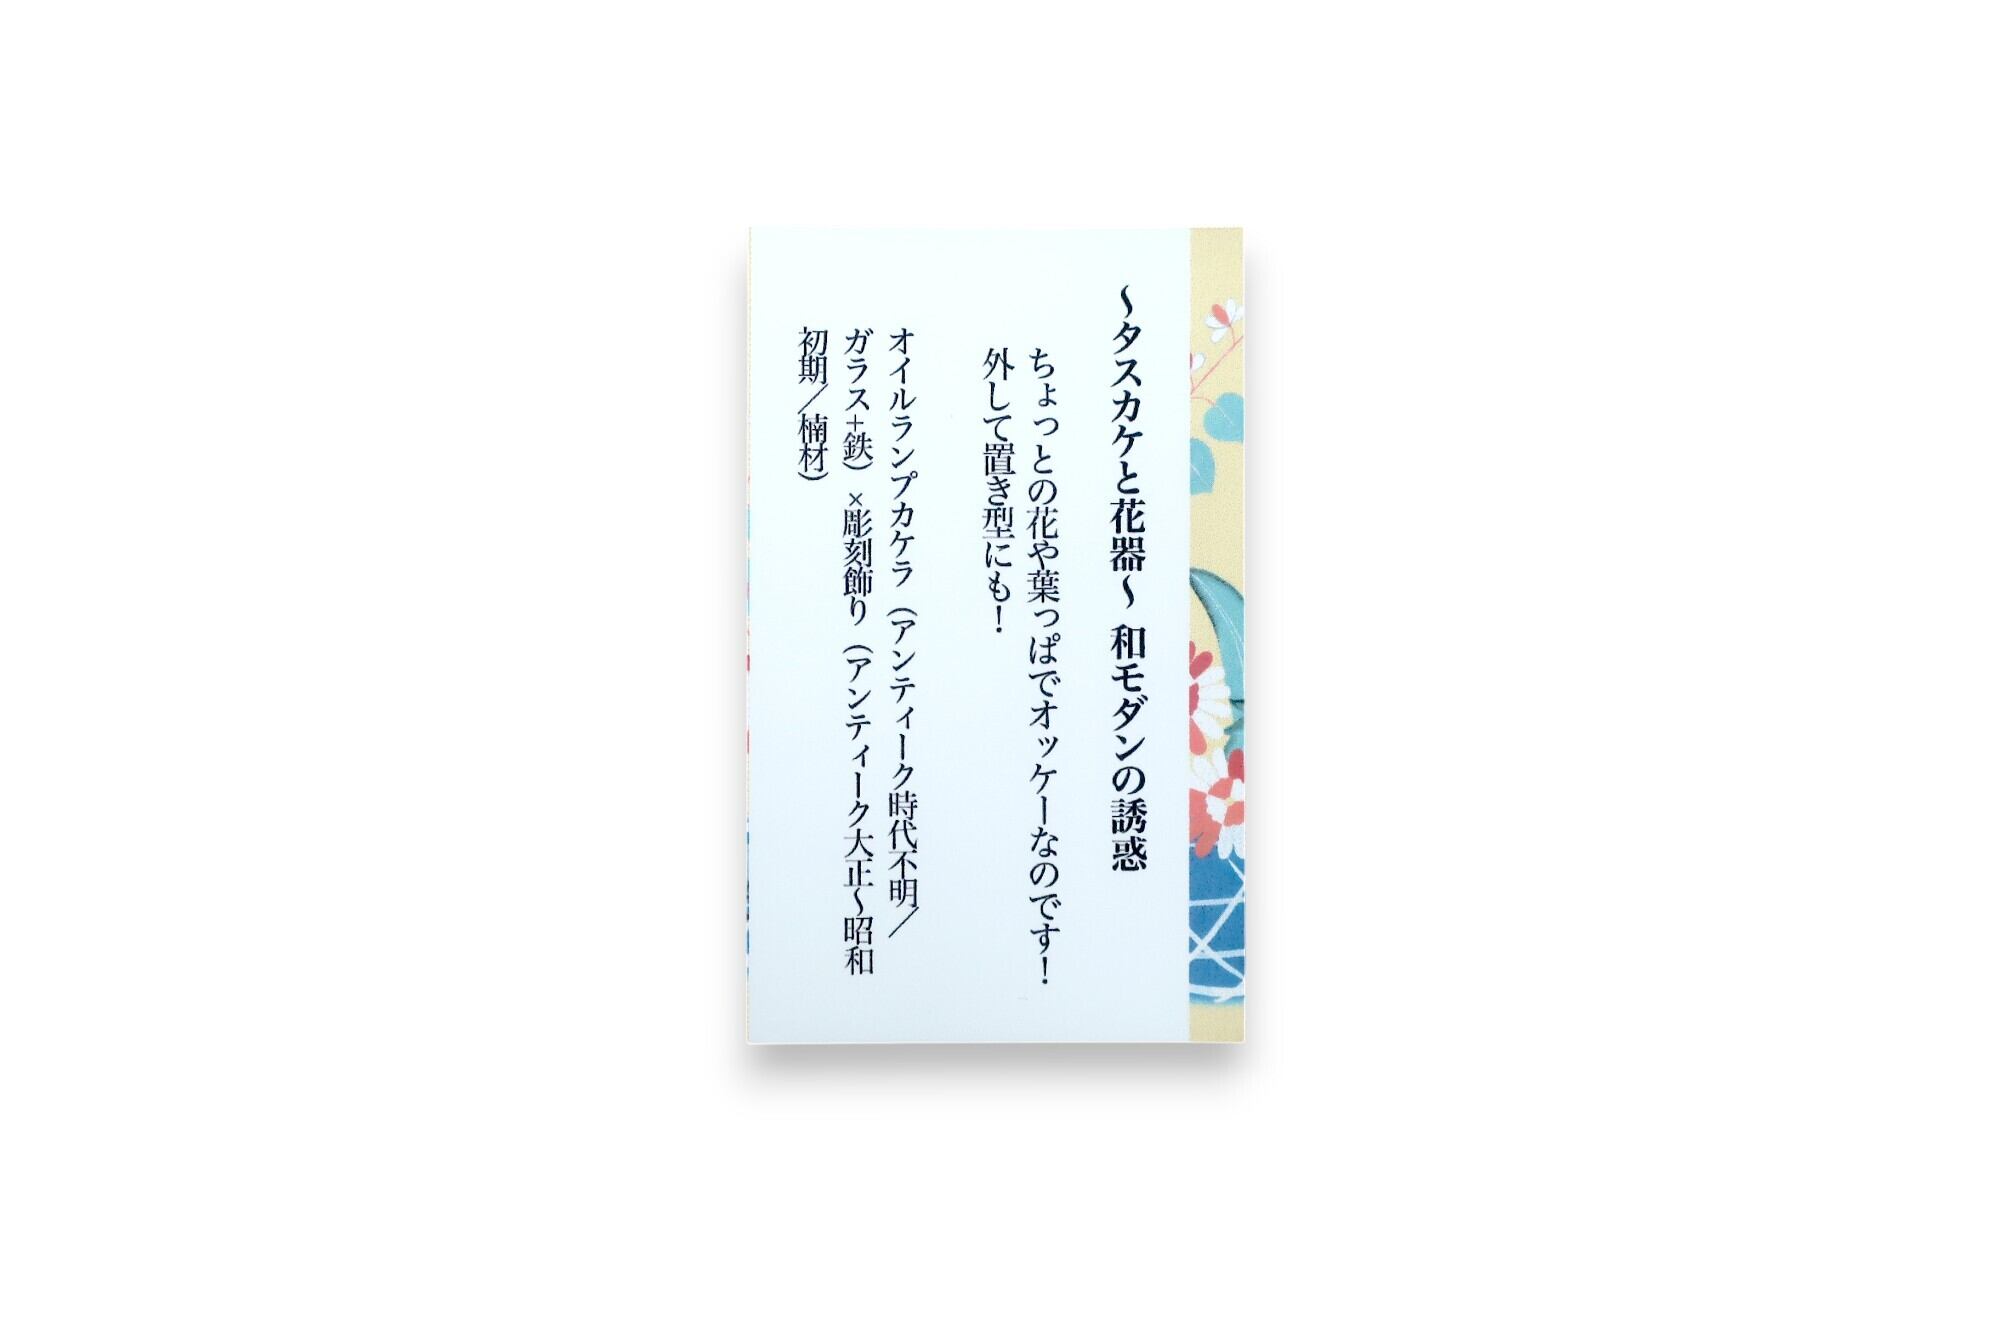 〜タスカケと花器〜 和モダンの誘惑
ちょっとの花や葉っぱでオッケーなのです！
外して置き型にも！
オイルランプカケラ（アンティーク時代不明／
ガラス+鉄）×彫刻飾り（アンティーク大正〜昭和
初期／楠材）